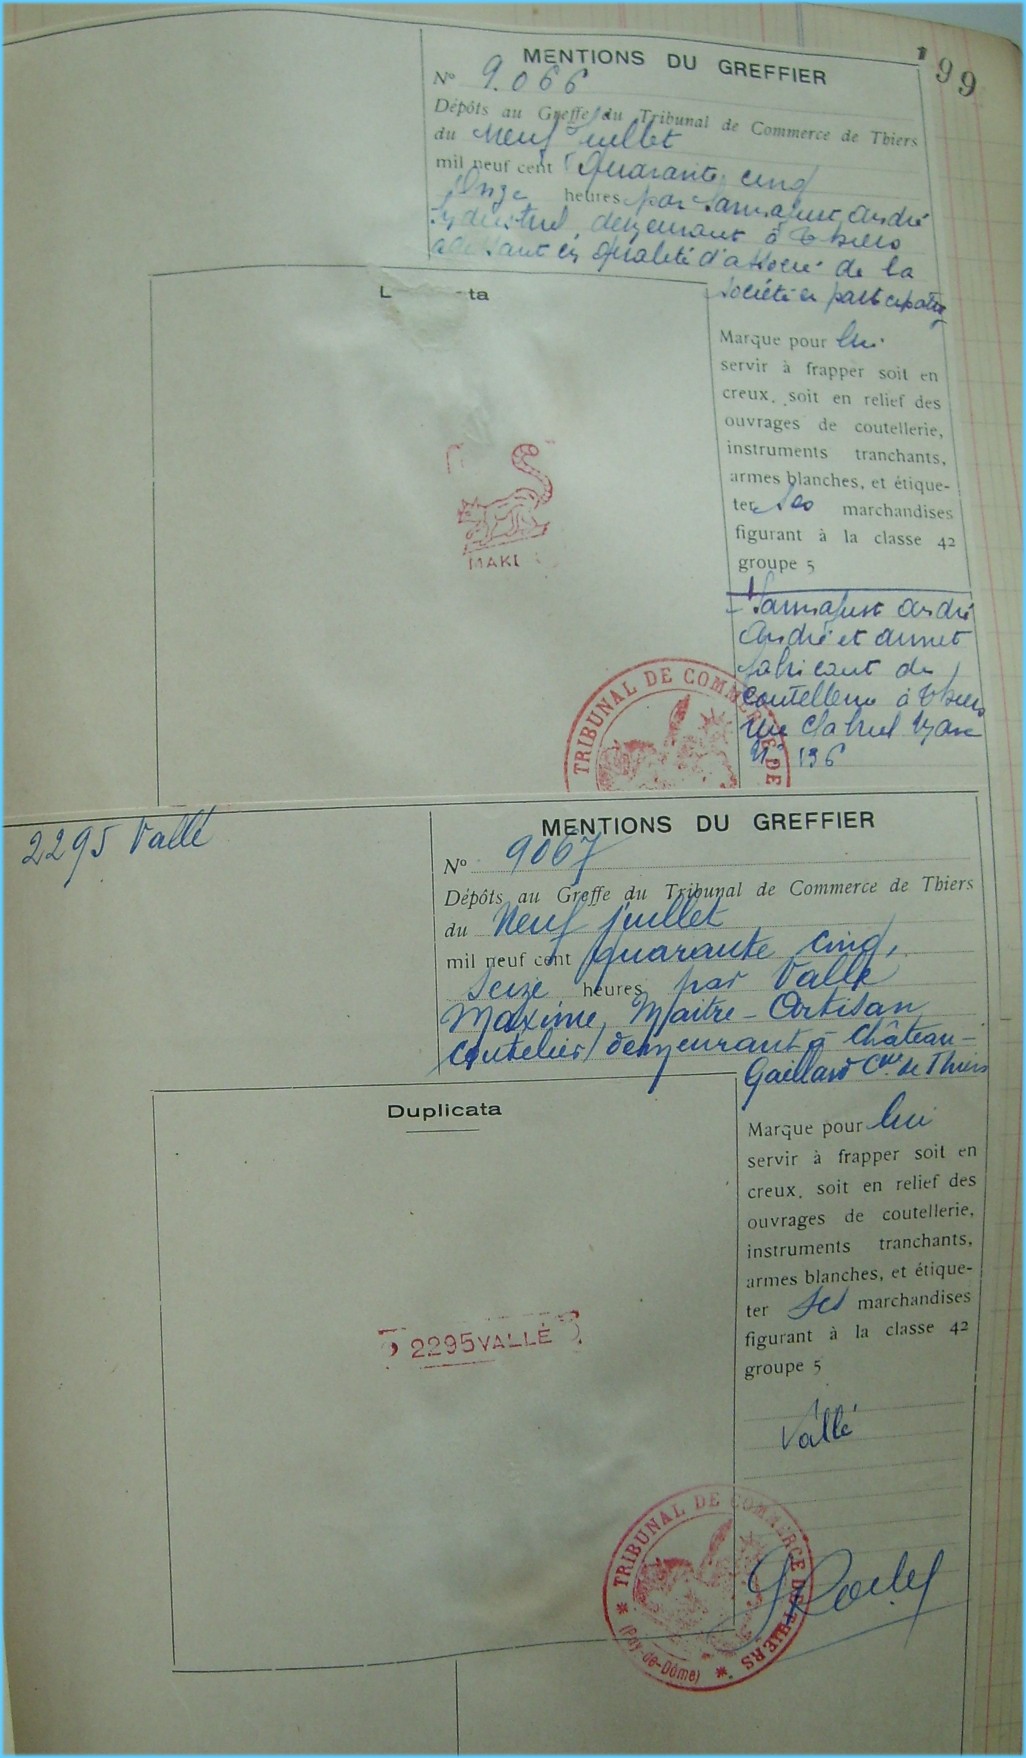 199
MENTIONS DU GREFFIER
N° 9.066
Dépôts au Greffe du Tribunal de Commerce de Thiers
du Neuf Juillet
mil neuf cent Quarante cinq
Onze heures par André
Industriel, demeurant à Thiers
agissant en qualité d'associé de la
Société en participation
L ta
Marque pour lui
servir à frapper soit en
creux, soit en relief des
ouvrages de coutellerie,
instruments tranchants,
armes blanches, et étique-
ter ses marchandises
figurant à la classe 42
groupe 5
MAKI
André
André et annet
fabricant de
coutellerie à Thiers
rue
N° 136
TRIBUNAL DE COMMERCE DE
2295 Vallé
MENTIONS DU GREFFIER
N° 9067
Dépôts au Greffe du Tribunal de Commerce de Thiers
du Neuf juillet
mil neuf cent quarante cinq,
Seize heures par Vallé
Maxime, Maître-Artisan
Coutelier demeurant à Château-
Gaillard Cne de Thiers
Duplicata
Marque pour lui
servir à frapper soit en
creux, soit en relief des
ouvrages de coutellerie,
instruments tranchants,
armes blanches, et étique-
ter ses marchandises
figurant à la classe 42
groupe 5
2295 VALLÉ
Vallé
* TRIBUNAL DE COMMERCE DE THIERS *
(Puy-de-Dôme)